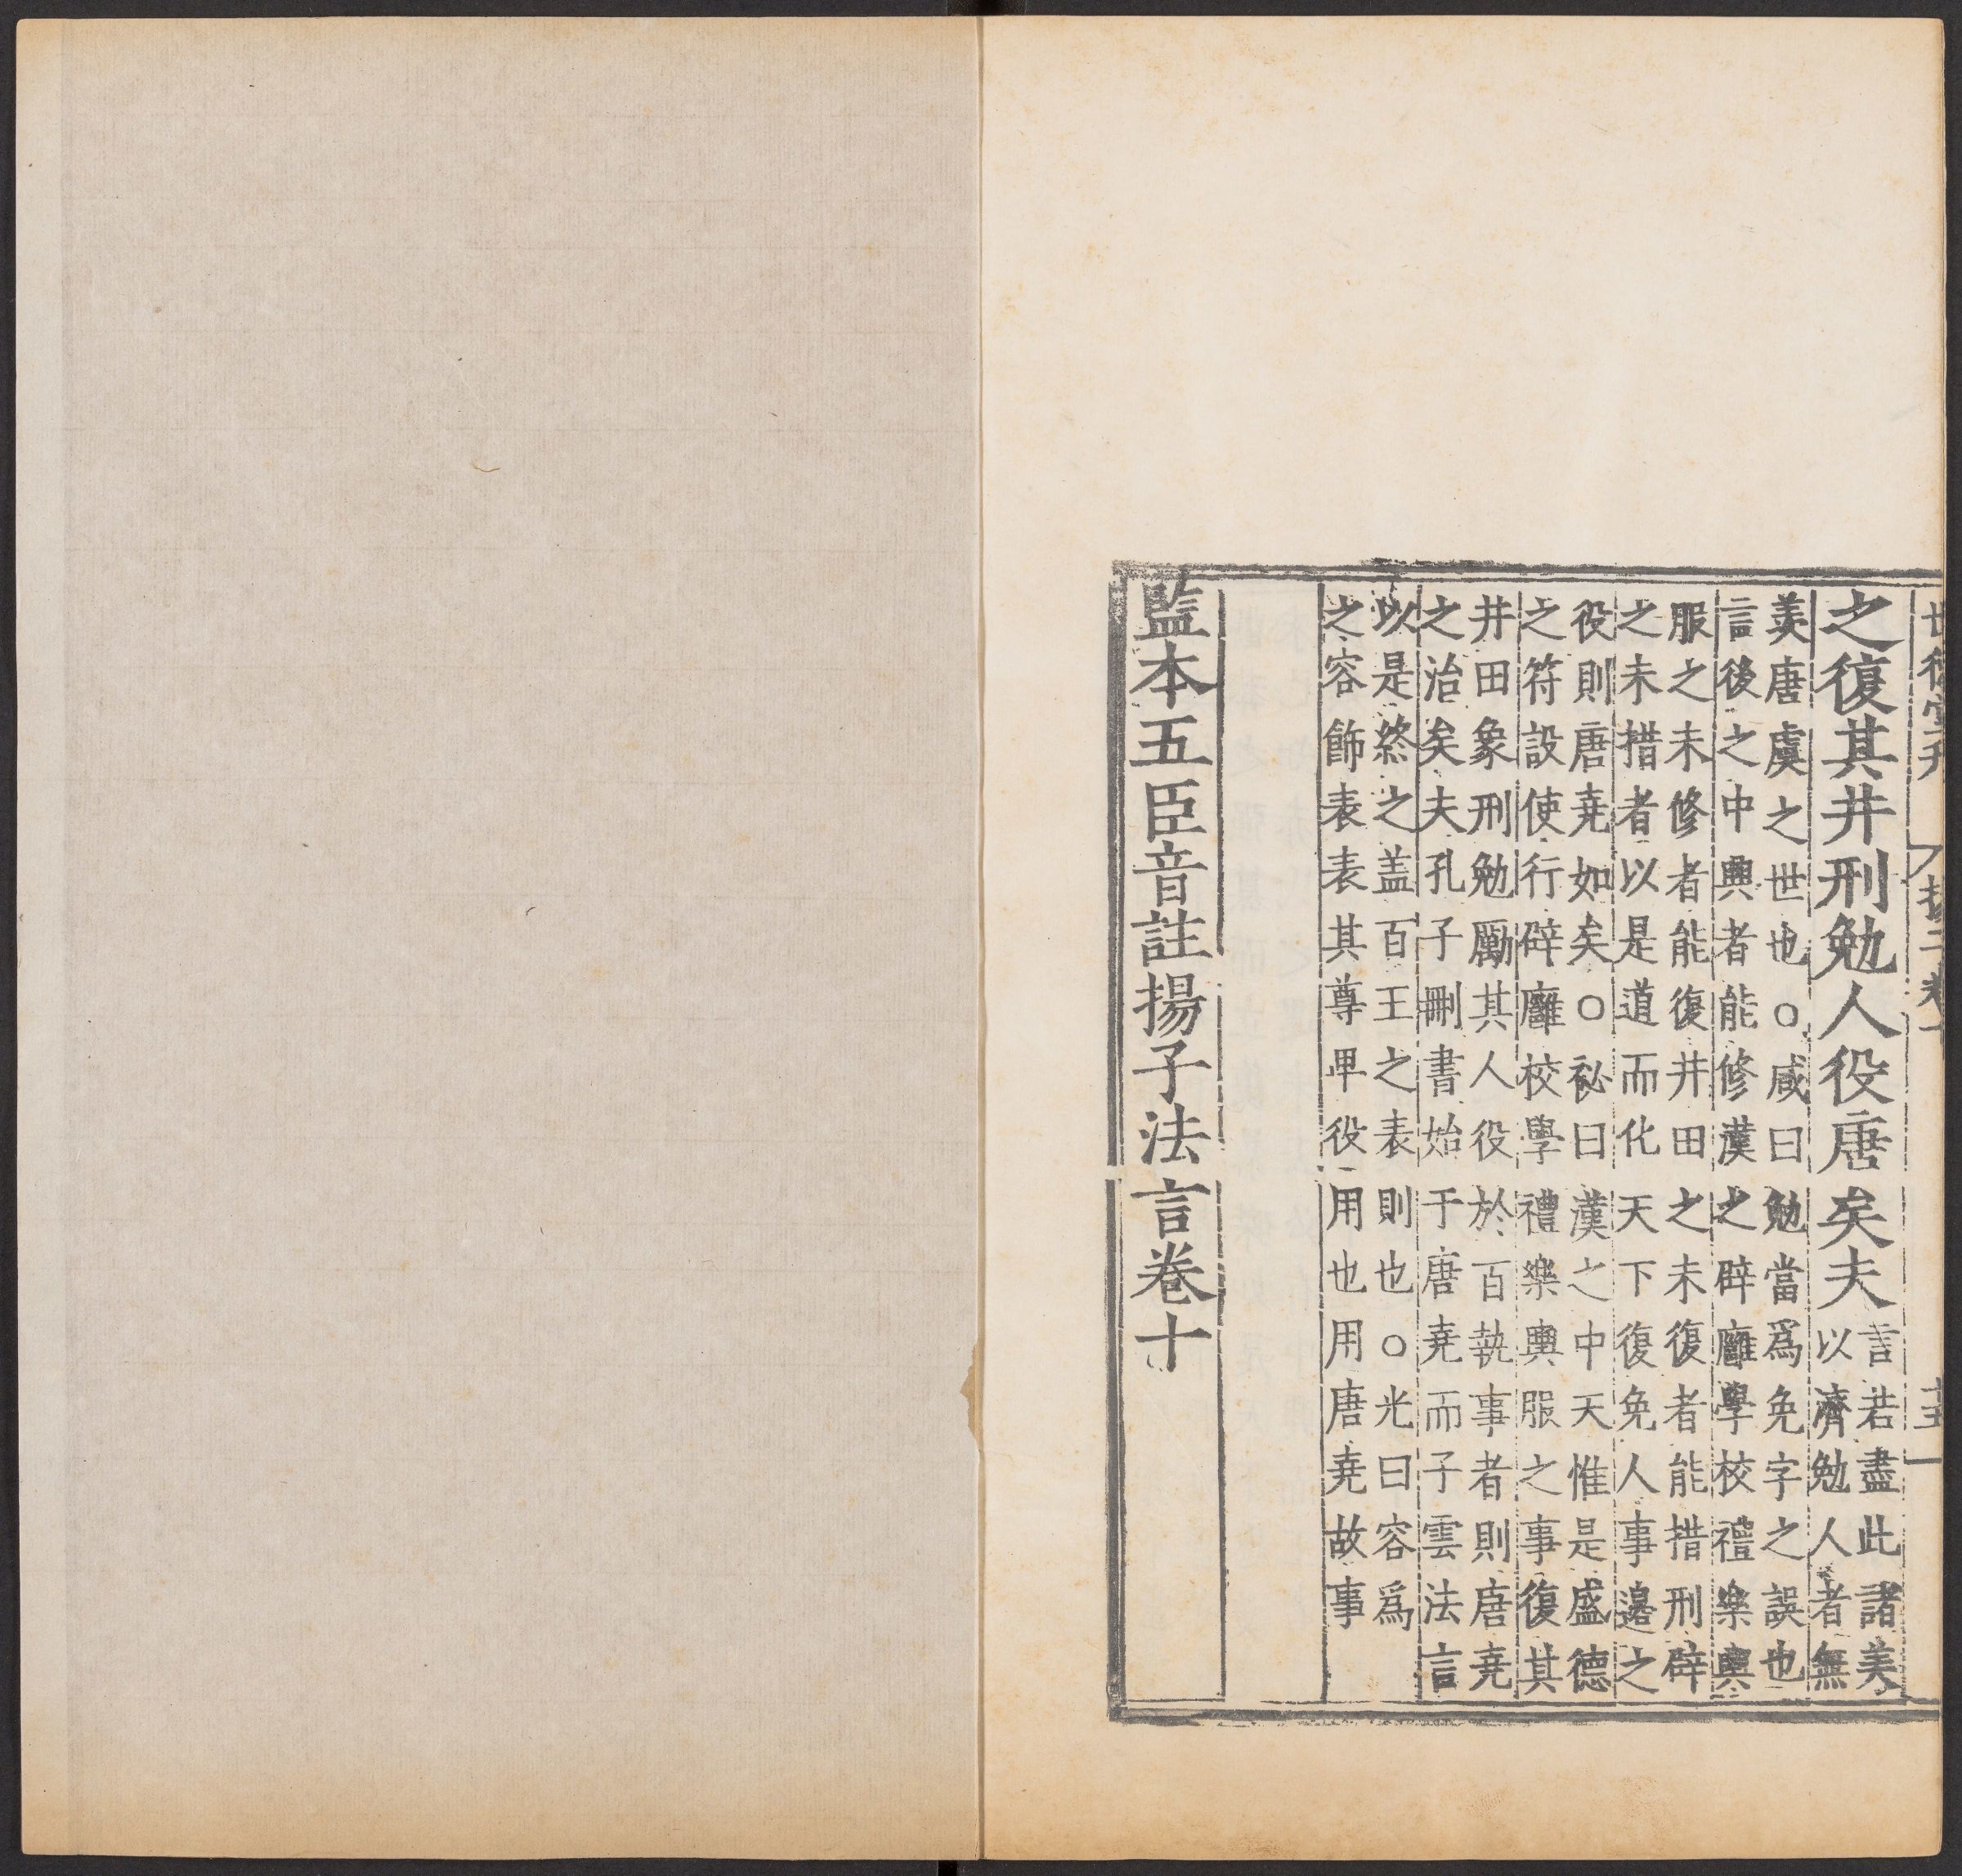 世德堂刊
揚子卷十
之復其井刑勉人役唐矣夫
言若盡此諸美
以濟勉人者無
羡唐虞之世也○咸曰勉當爲免字之誤也
言後之中興者能修漢之辟廱學校禮樂輿
服之未修者能復井田之未復者能措刑辟
之未措者以是道而化天下復免人事邊之
役則唐堯如矣○祕曰漢之中天惟是盛德
之符設使行辟廱校學禮樂輿服之事復其
井田象刑勉勵其人役於百執事者則唐堯
之治矣夫孔子刪書始于唐堯而子雲法言
以是終之盖百王之表則也○光曰容爲
之容飾表表其尊卑役用也用唐堯故事
監本五臣音註揚子法言卷十